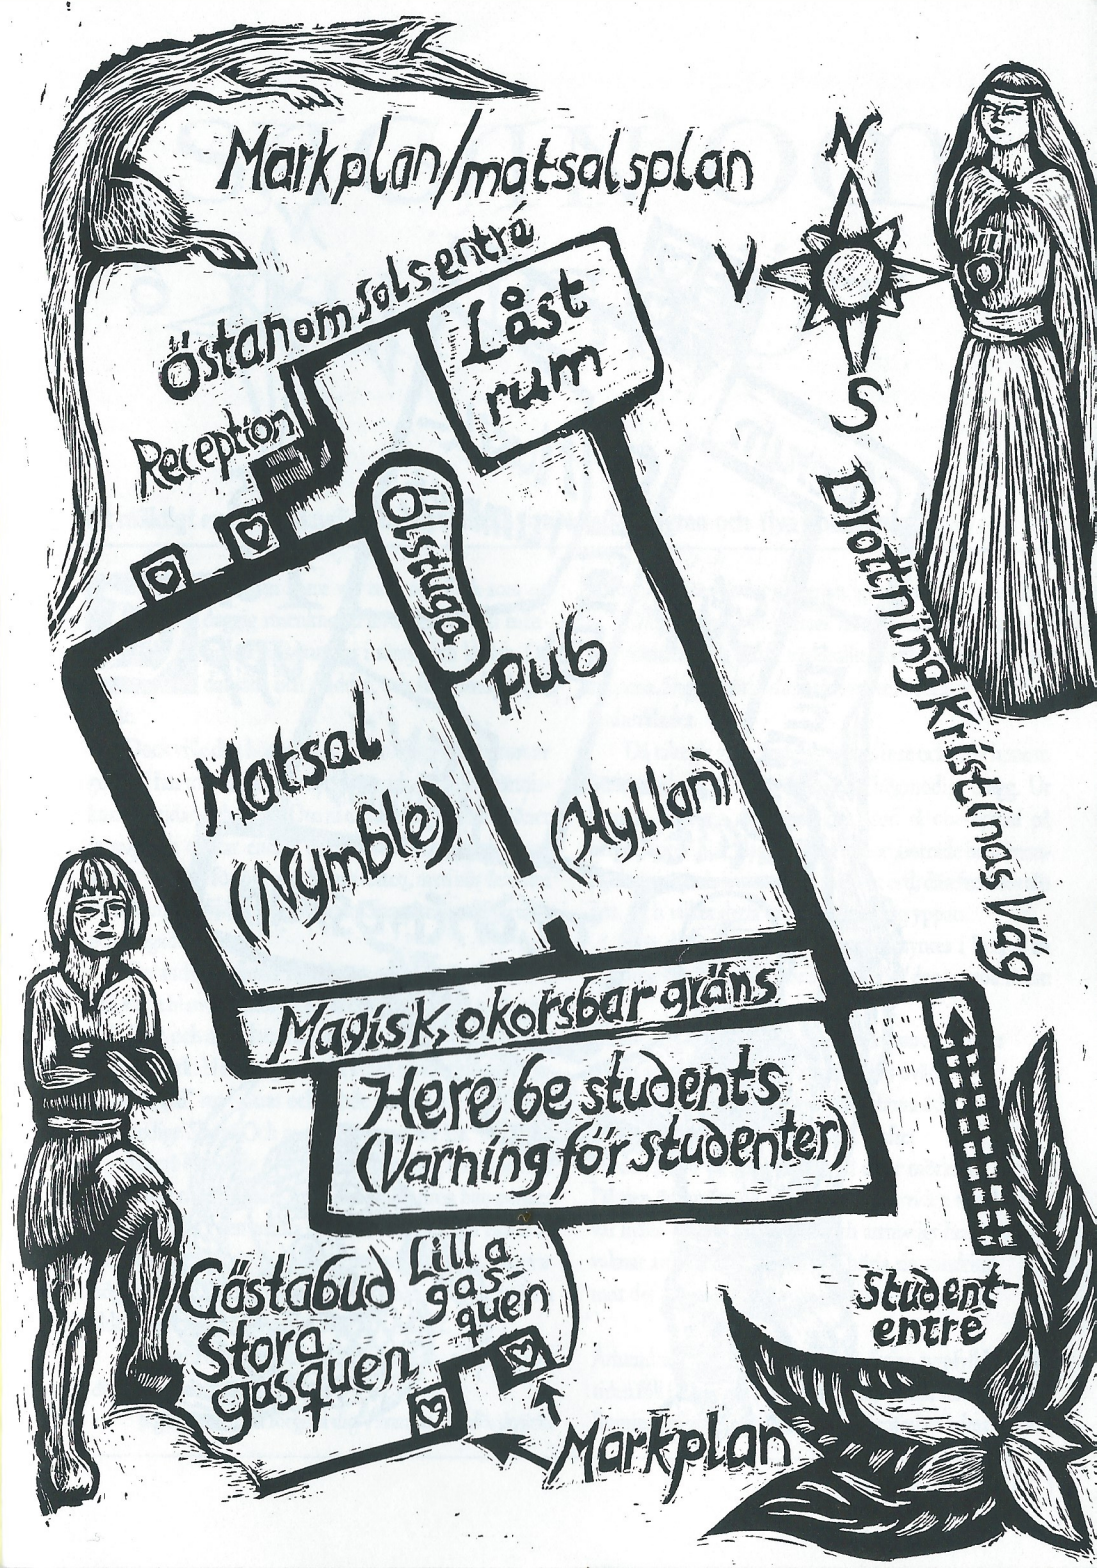 Markplan/matsalsplan
N
V
S
Östanhomsalsentré
Låst
rum
Reception
Ölstuga
pub
(Hyllan)
Matsal
(Nymble)
Drottning Kristinas Väg
Magisk, okorsbar gräns
Here be students
(Varning för studenter)
Gästabud
Stora
gasquen
Lilla
gas-
quen
Student-
entré
Markplan